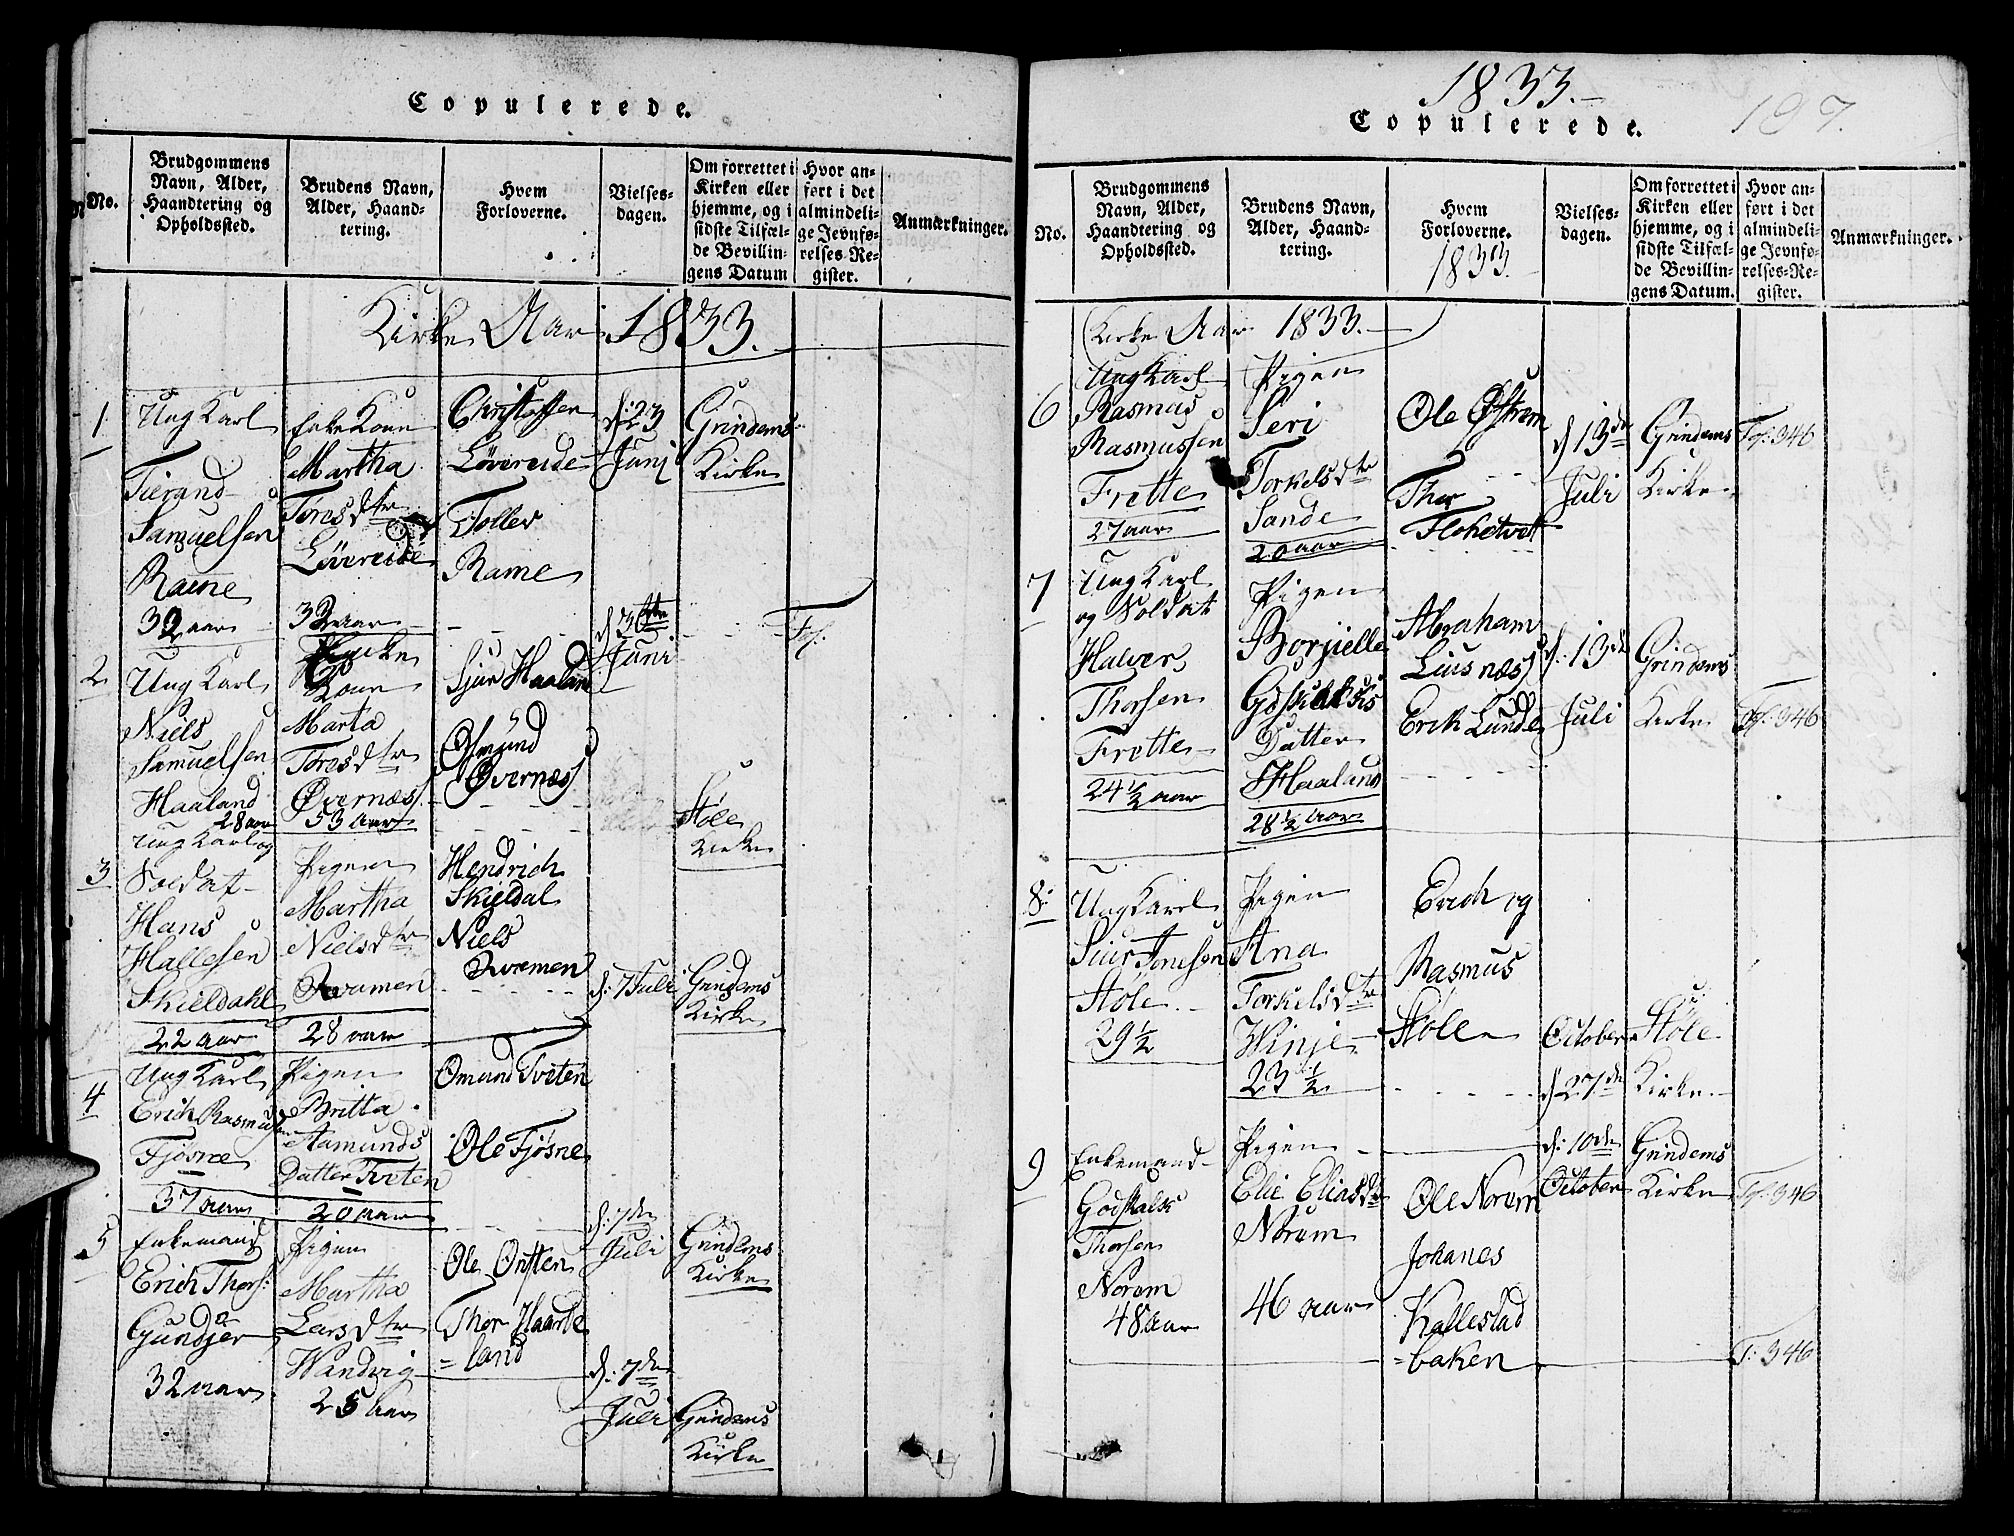 Copulerede.
No.
Brudgommens
Navn, Alder,
Haandtering og
Opholdssted.
Brudens Navn,
Alder, Haand-
tering.
Hvem
Forloverne.
Vielses-
dagen.
Om forrettet i
Kirken eller
hjemme, og i
sidste Tilfæl-
de Bevillin-
gens Datum
Hvor an-
ført i det
almindeli-
ge Jevnfø-
relses-Re-
gister.
Anmærkninger.
Kirke Aar 1833.
1
Ung Karl
Tierand
Samuelsen
Rame
32 aar
Enke Kone
Martha
Torsdtr
Lövereide
32 aar
Christoffen
Lövereide
Tollev
Rame
d: 23
Juni
Grindems
Kirke
2
Ung Karl
Niels
Samuelsen
Haaland
28 aar
Enke
Kone
Marta
Toresdtr
Øvernæs
53 aar
Sjur Haaland
Osmund
Øvernæs
d 30te
Juni
Stöle
Kirke
Tgf:
3
Ung Karl og
Soldat
Hans
Hallesen
Skieldahl
22 aar
Pigen
Martha
Nielsdtr
Qvamen
28 aar
Hendrich
Skieldal
Niels
Kvamen
d: 7 Juli
Grindems
Kirke
4
Ung Karl
Erich Rasmusen
Fjøsne
37 aar
Pigen
Britta
Aamunds
Datter Tveten
20 aar
Omund Tveten
Ole Fjøsne
d: 7de
Juli
Grindems
Kirke
5
Enkemand
Erich Thors:
Gundjer
32 aar
Pigen
Martha
Larsdtr
Wandvig
25 aar
Ole Østen
Thor Haave
=land
d: 7de
Juli
Grindems
Kirke
1833.
197.
Copulerede.
No.
Brudgommens
Navn, Alder,
Haandtering og
Opholdssted.
Brudens Navn,
Alder, Haand-
tering.
Hvem
Forloverne.
1833.
Vielses-
dagen.
Om forrettet i
Kirken eller
hjemme, og i
sidste Tilfæl-
de Bevillin-
gens Datum.
Hvor an-
ført i det
almindeli-
ge Jevnfø-
relses-Re-
gister.
Anmærkninger.
Kirke Aar 1833.
6
Ung Karl
Rasmus
Rasmussen
Frette
27 aar
Pigen
Seri
Torkelsdtr
Sande
20 aar
Ole Østrem
Thor
Flohetvett
d 13de
Juli
Grindems
Kirke
Tgf: 346
7
Ung Karl
og Soldat
Halver
Thorsen
Frette
24 ½ aar
Pigen
Borgielle
Godskalks
Datter
Haaland
28 ½ aar
Abraham
Liusnæs
Erik Lunde
d: 13de
Juli
Grindems
Kirke
Tgf: 346
8
Ung Karl
Siur Jonesen
Stöle
29 ½
Pigen
Ana
Torkelsdtr
Winje
23 ½
Erich og
Rasmus
Stöle
October
d 27de
Stöle
Kirke
9
Enkemand
Godskalk
Thorsen
Norom
48 aar
Pigen
Elie Eliasdtr
Norum
46 aar
Ole Norum
Johanes
Kallestad
=baken
d: 10de
October
Grindems
Kirke
Tgf: 346
T: 346